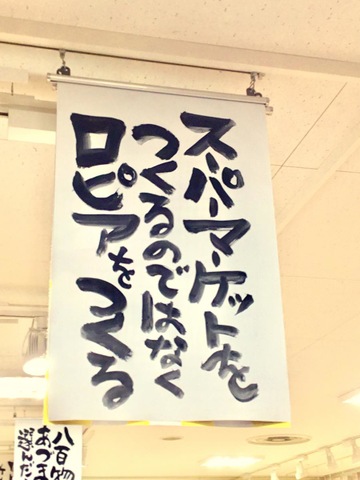 スーパーマーケットを
つくるのではなく
ロピアをつくる
八百物
あづま
選んだ